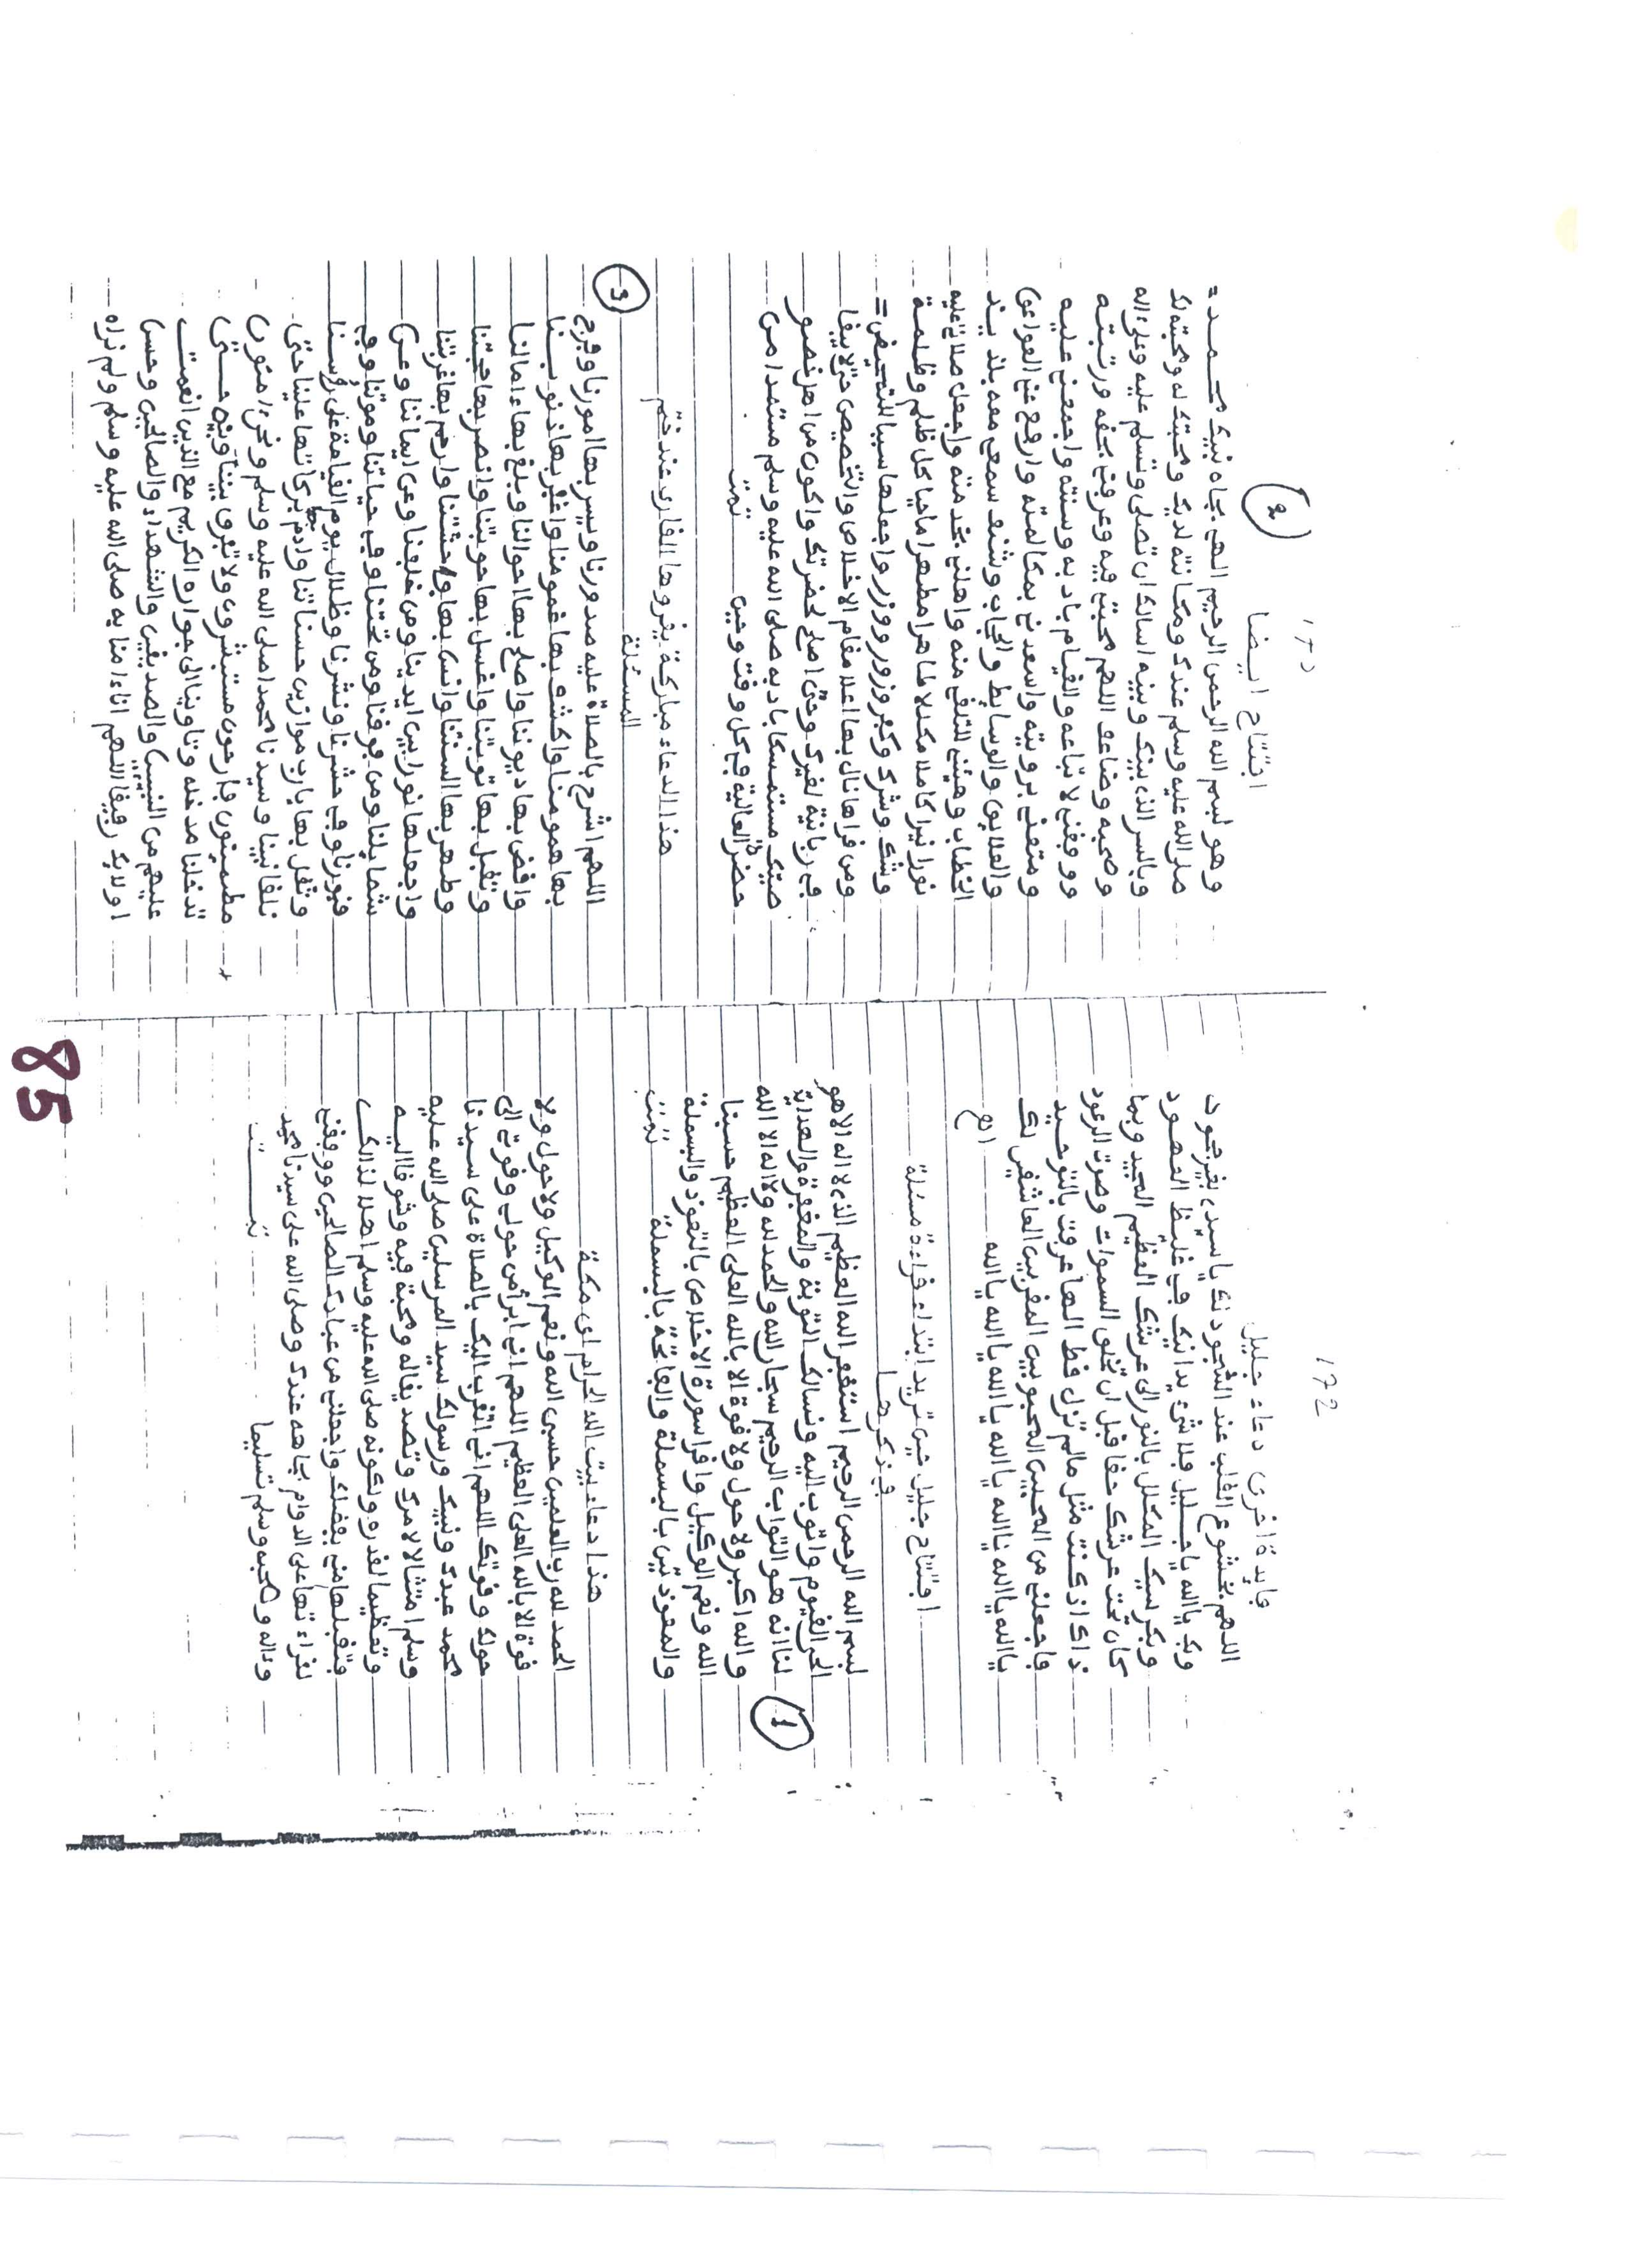 172
فايدة اخرى دعاء جليل
اللهم بخشوع القلب عند السجود لك يا سيدى بغير جحود
وبك يا الله يا جليل فلا شئ يدانيك في غليظ العهود
وبكرسيك المكلل بالنور الى عرشك العظيم المجيد وبما
كان تحت عرشك حقا قبل ان تخلق السموات وصوت الرعود
ذاك اذ كنت مثل مالم تزل قط الها عرفت بالتوحيد
فاجعلنى من المحبين المحبوبين المقربين العاشقين لك
يا الله يا الله يا الله يا الله يا الله يا الله يا الله
افتتاح جليل حين تريد ابتداء قراءة مسئلة
فذكرها
1
بسم الله الرحمن الرحيم استغفر الله العظيم الذى لا اله الا هو
الحى القيوم واتوب اليه ونسالك التوبة والمغفرة والهداية
لنا انه هو التواب الرحيم سبحان الله والحمد لله ولا اله الا الله
والله اكبر ولا حول ولا قوة الا بالله العلى العظيم حسبنا
الله ونعم الوكيل واقرا سورة الاخلاص بالتعوذ والبسملة
والمعوذتين بالبسملة والفاتحة بالبسملة تمت
هذا دعاء بيت الله الحرام اى مكة
الحمد لله رب العلمين حسبى الله ونعم الوكيل ولا حول ولا
قوة الا بالله العلى العظيم اللهم انى ابرأ من حولى وقوتى الى
حولك وقوتك اللهم انى اتقرب اليك بالصلاة على سيدنا
محمد عبدك ونبيك ورسولك سيد المرسلين صلى الله عليه
وسلم امتثالا لامرك وتصديقا له ومحبة فيه وشوقا اليه
وتعظيما لقدره ولكونه صلى الله عليه وسلم اهلا لذالك
فتقبلها منى بفضلك واجعلنى من عبادك الصالحين ووفقنى
لقراءتها على الدوام بجاهه عندك وصلى الله على سيدنا محمد
وءاله وصحبه وسلم تسليما تمت
2
افتتاح ايضا
وهو بسم الله الرحمن الرحيم الهى بجاه نبيك محمد
صلى الله عليه وسلم عندك ومكانته لديك ومحبتك له ومحبته لك
وبالسر الذى بينك وبينه اسالك ان تصلى وتسلم عليه وعلى اله
وصحبه وضاعف اللهم محبتى فيه وعرفنى بحقه ورتبته
ووفقنى لاتباعه والقيام بادبه وسنته واجمعنى عليه
ومتعنى برويته واسعدنى بمكالمته وارفع عنى العوائق
والعلايق والوسايط والحجاب وشنف سمعى معه بلذيذ
الخطاب وهيئنى للتلقى منه واهلنى بخدمته واجعل صلاتى عليه
نورا نيرا كاملا مكملا طاهرا مطهرا ماحيا كل ظلم وظلمة
وشك وشرك وكفر وزور ووزر واجعلها سببا للتمحيص
ومرقا هانال بها اعلا مقام الاخلاص والتخصيص حتى لا يبقا
في ربانية لغيرك وحتى اصلح لحضرتك واكون من اهل خصو
صيتك مستمسكا بادبه صلى الله عليه وسلم مستمدا من
حضرته العالية في كل وقت وحين تمت
هذا الدعاء مباركة يقروها القارئ عند ختم
المسئلة
3
اللهم اشرح بالصلاة عليه صدورنا ويسر بها امورنا وفرج
بها همومنا واكشف بها غمومنا واغفر بها ذنوبنا
واقض بها ديوننا واصلح بها احوالنا وبلغ بها ءامالنا
وتقبل بها توبتنا واغسل بها حوبتنا وانصر بها حجتنا
وطهر بها السنتنا وانس بها وحشتنا وارحم بها غربتنا
واجعلها نورا بين ايدينا ومن خلفنا وعن ايماننا وعن
شمايلنا ومن فوقنا ومن تحتنا وفى حياتنا وموتنا وفى
قبورنا وفى حشرنا ونشرنا وظلال يوم القيامة على رؤسنا
وثقل بها يارب موازين حسناتنا وادم بركاتها علينا حتى
نلقا نبينا وسيدنا محمدا صلى الله عليه وسلم ونحن ءامنون
مطمئنون فارحون مستبشرون ولا تفرق بيننا وبينه حتى
تدخلنا مدخله وتاوينا الى جواره الكريم مع الذين انعمت
عليهم من النبيين والصديقين والشهداء والصالحين وحسن
اولايك رفيقا اللهم انا ءامنا به صلى الله عليه وسلم ولم نراه
85